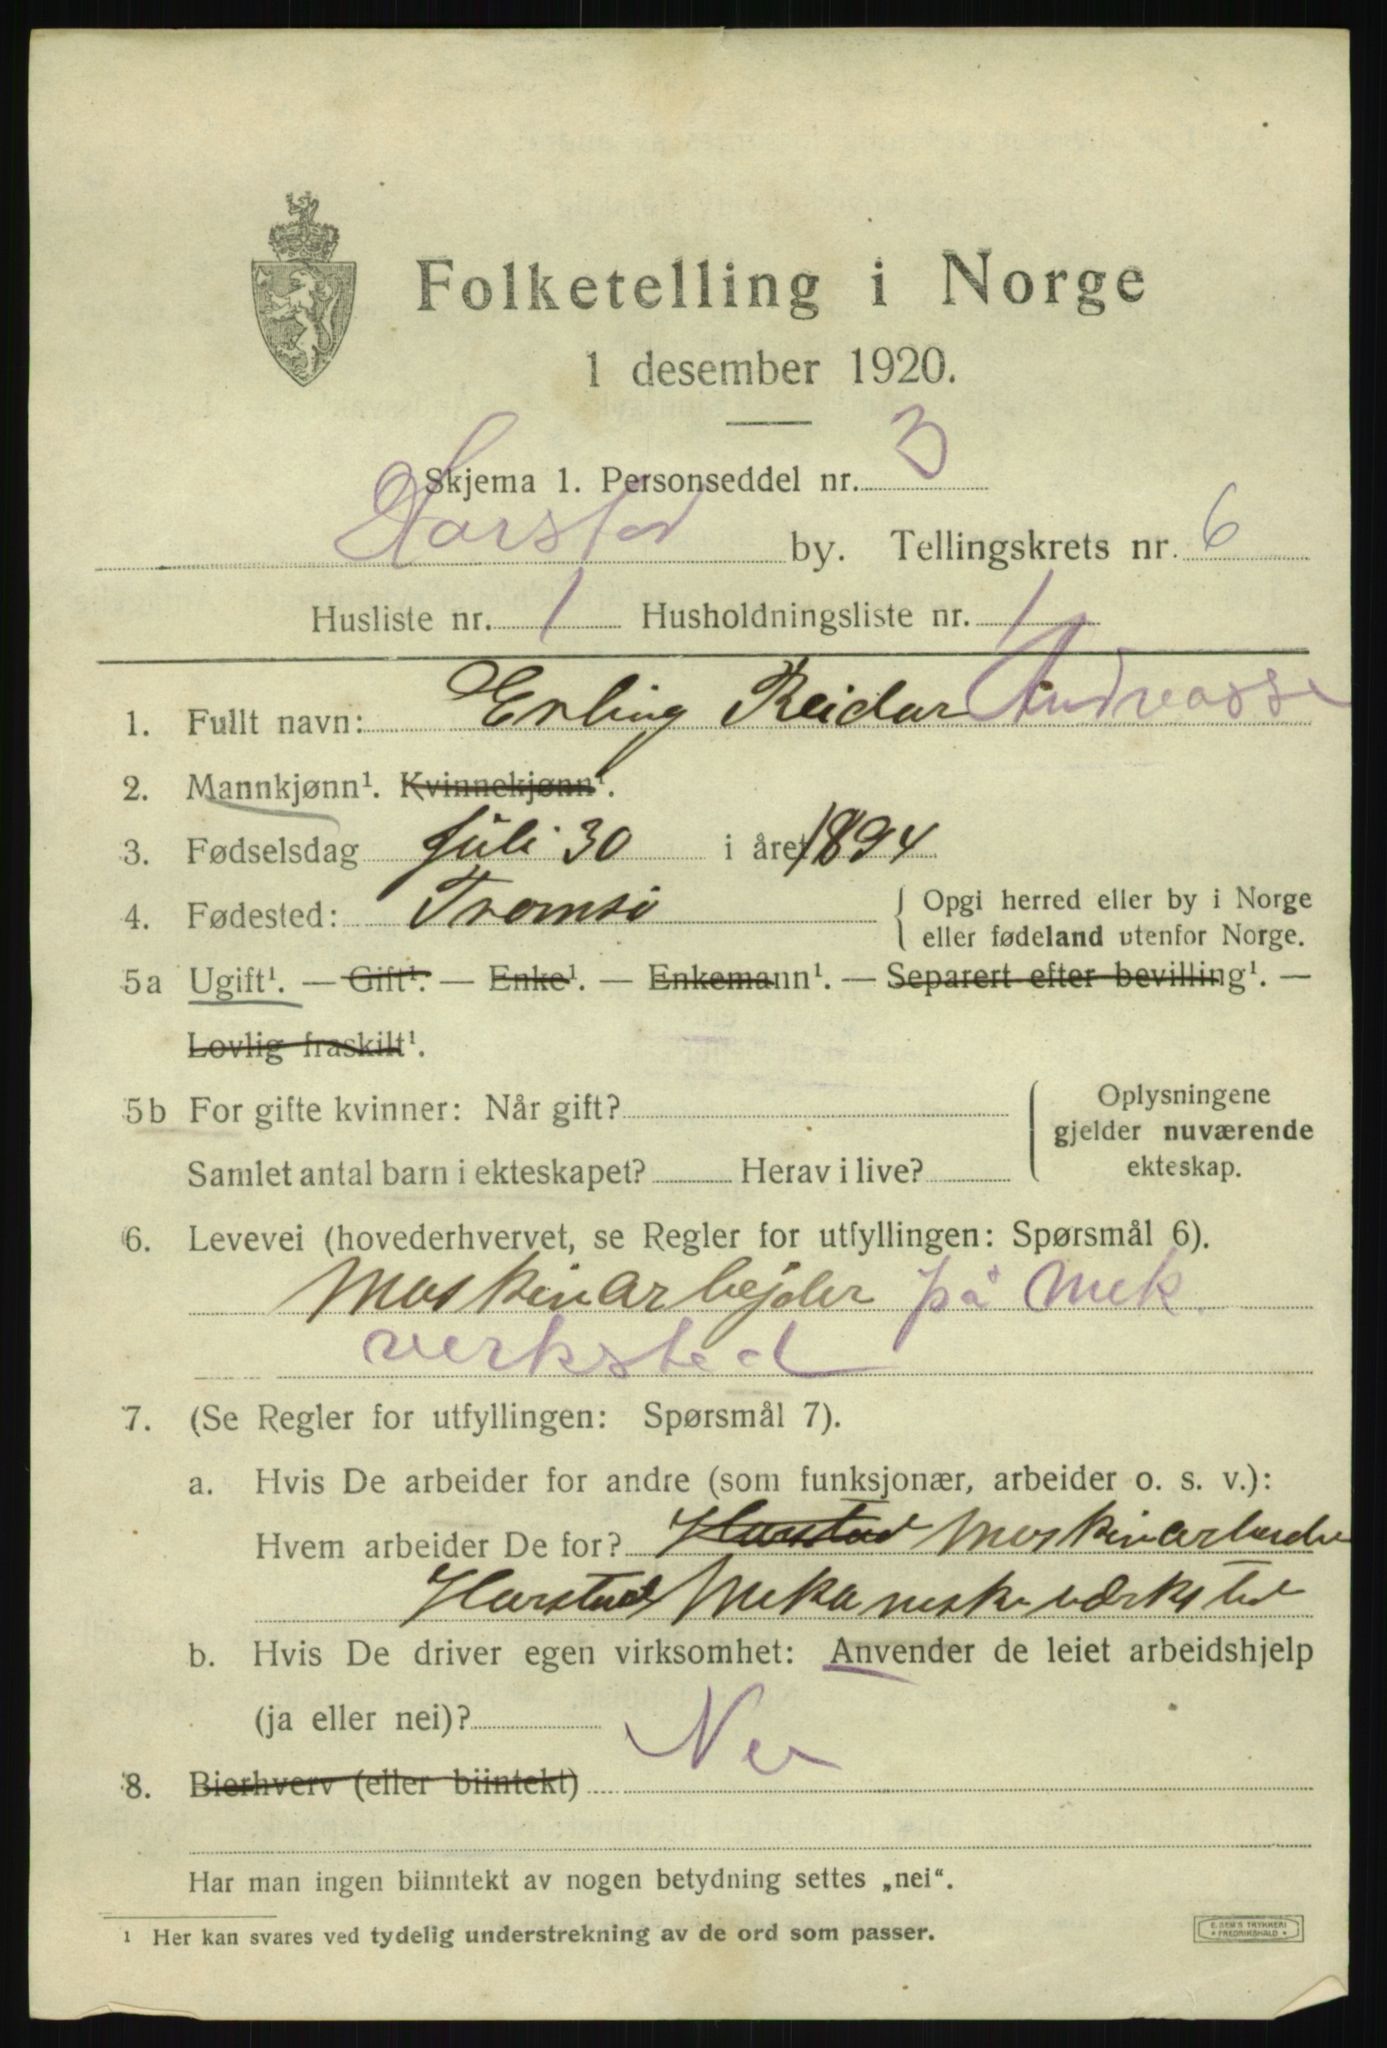 Folketelling i Norge
1 desember 1920.
Skjema 1. Personseddel nr. 3
Harstad by. Tellingskrets nr. 6
Husliste nr. 1 Husholdningsliste nr. 1
1. Fullt navn: Erling Reidar Andreasse
2. Mannkjønn¹. Kvinnekjønn¹.
3. Fødselsdag Juli 30 i året 1894
4. Fødested: Tromsö { Opgi herred eller by i Norge
eller fødeland utenfor Norge.
5a Ugift¹. — Gift¹. — Enke¹. — Enkemann¹. — Separert efter bevilling¹. —
Lovlig fraskilt¹.
5b For gifte kvinner: Når gift? { Oplysningene
gjelder nuværende
Samlet antal barn i ekteskapet? Herav i live? ekteskap.
6. Levevei (hovederhvervet, se Regler for utfyllingen: Spørsmål 6).
Maskinarbejder på Mek.
verksted
7. (Se Regler for utfyllingen: Spørsmål 7).
a. Hvis De arbeider for andre (som funksjonær, arbeider o. s. v.):
Hvem arbeider De for? Harstad
Harstad Mekaniske værksted
b. Hvis De driver egen virksomhet: Anvender de leiet arbeidshjelp
(ja eller nei)?
Nei
8. Bierhverv (eller biintekt)
Har man ingen biinntekt av nogen betydning settes „nei“.
¹ Her kan svares ved tydelig understrekning av de ord som passer.
E. SEM'S TRYKKERI
* FREDRIKSHALD *